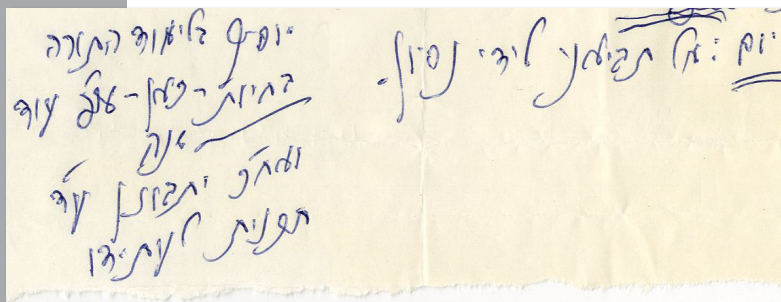 יום: אל תביאני לידי נסיון.
יוסיף בלימוד התורה
כאן - עכ"פ עוד
שנה
ואח"כ יתבונן ע"ד
תכנית לעתידו